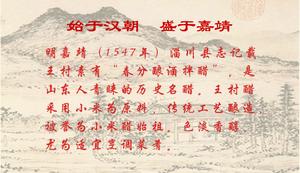 始于汉朝 盛于嘉靖
明嘉靖（1547年）淄川县志记载
王村素有“春分酿酒拌醋”，是
山东人青睐的历史名醋。王村醋
采用小米为原料 传统工艺酿造
被誉为小米醋始祖，色淡香醇
尤为适宜烹调菜肴。